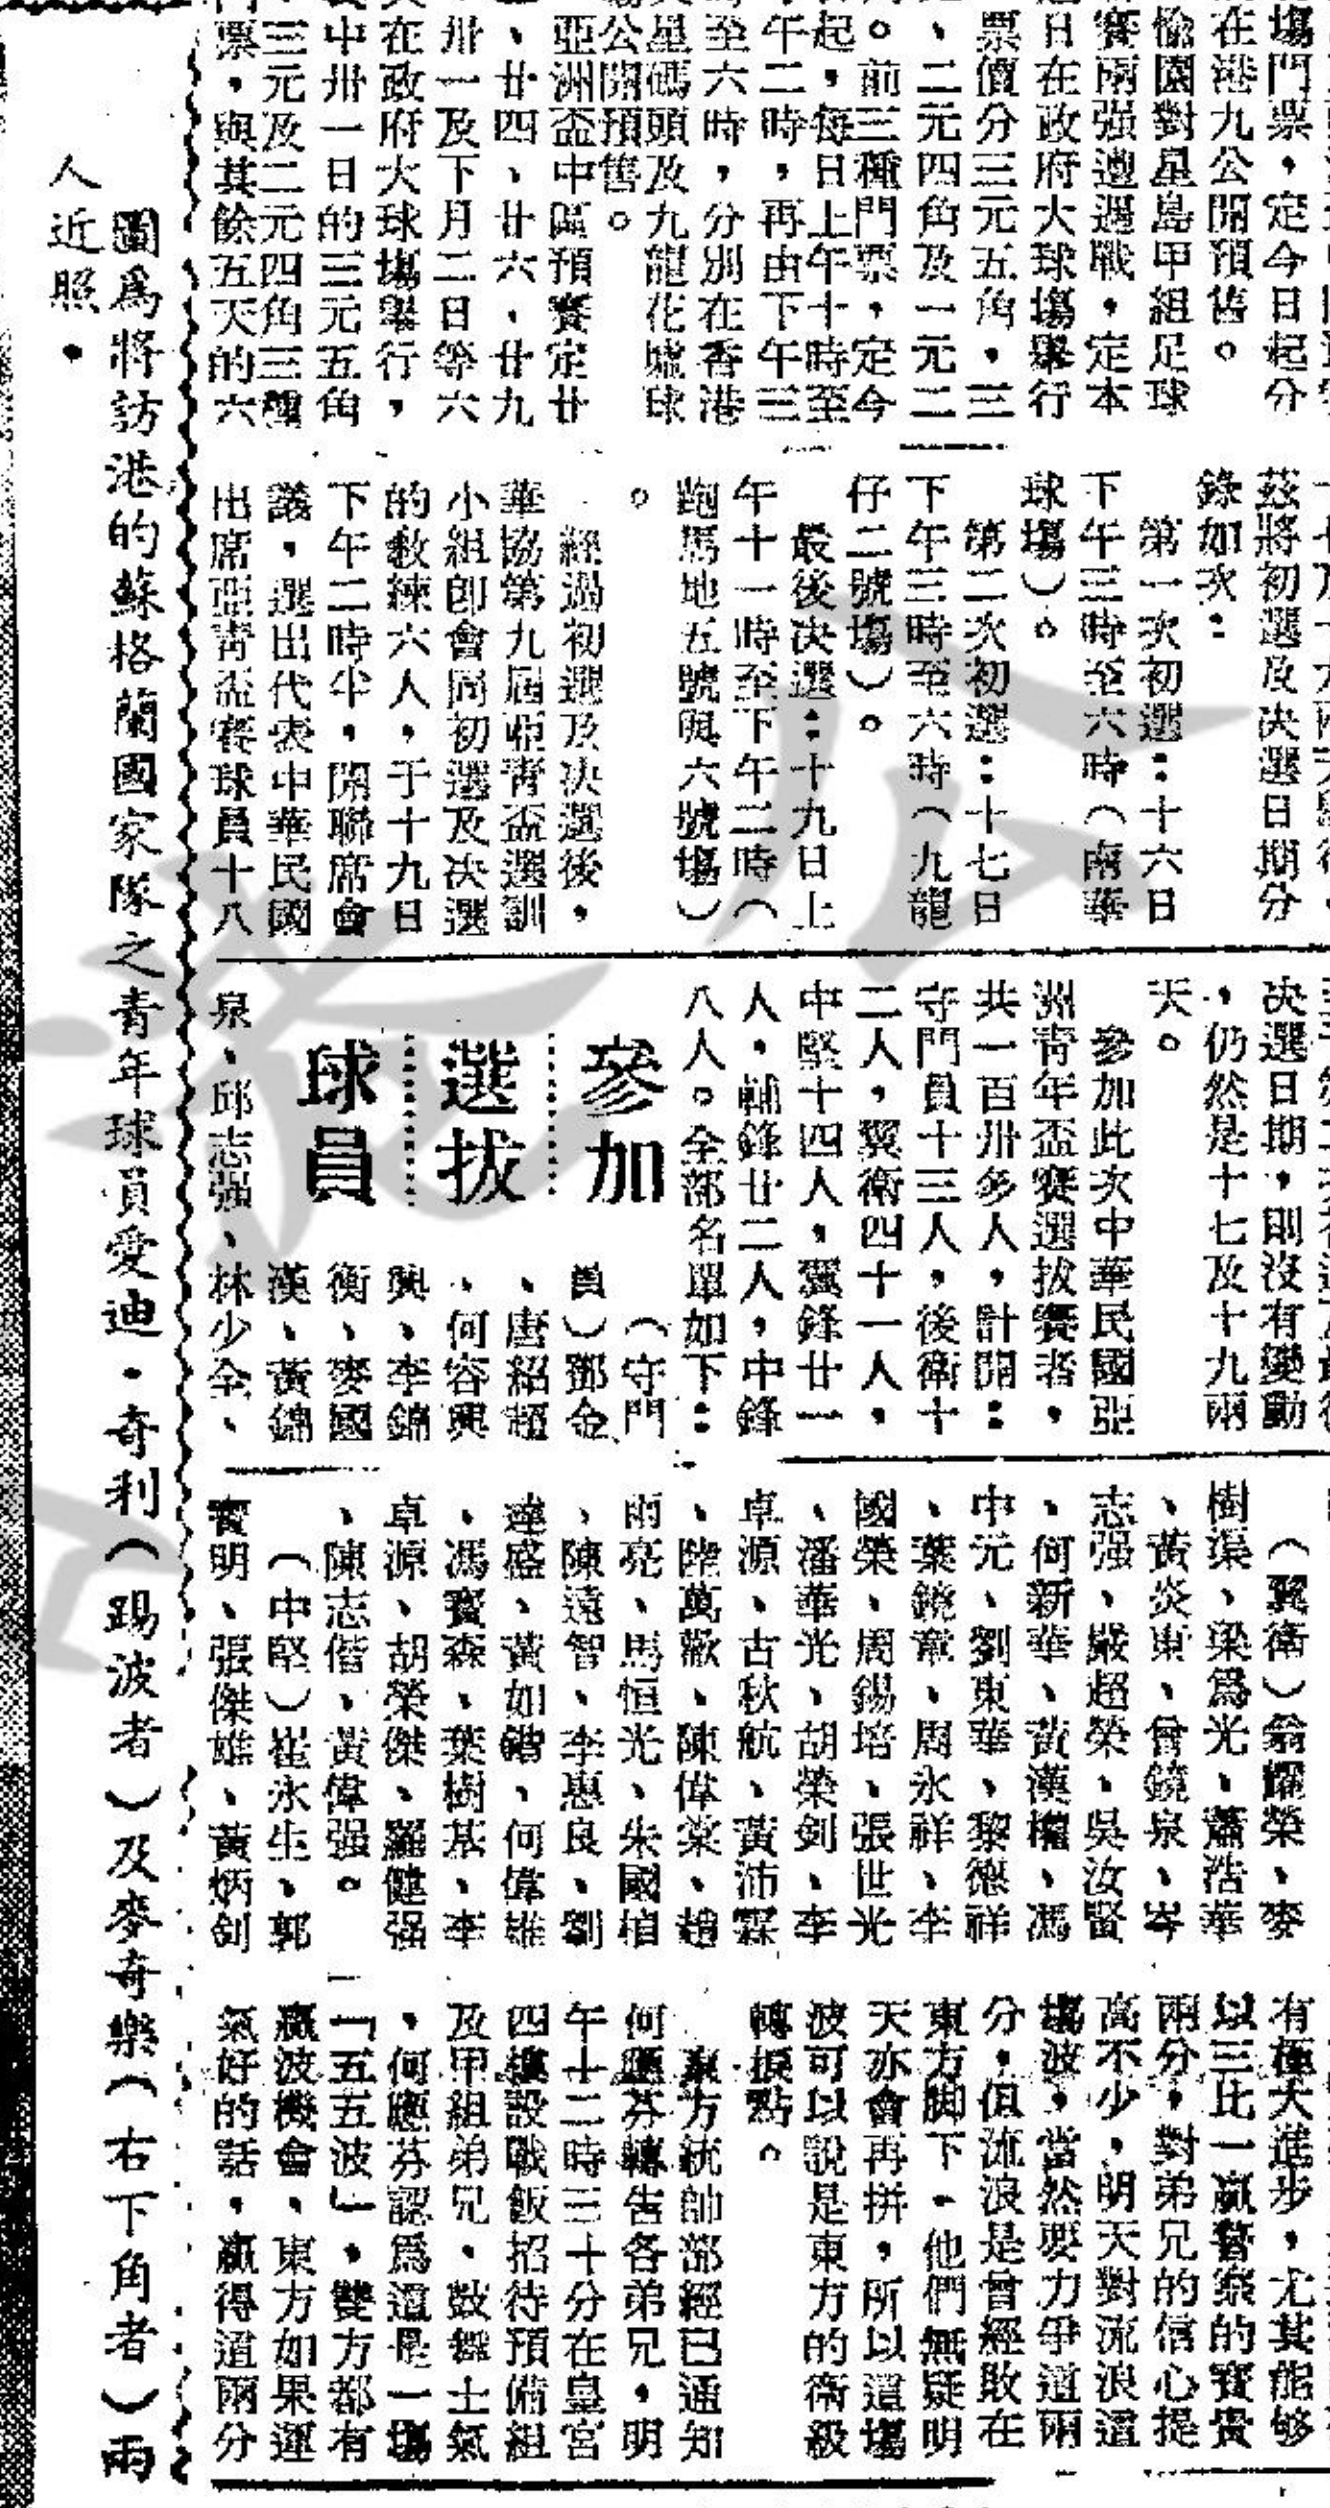 塲門票，定今日起分
在港九公開預售。
愉園對星島甲組足球
賽兩强遭遇戰，定本
日在政府大球塲舉行
票價分三元五角，三
、二元四角及一元二
。前三種門票，定今
起，每日上午十時至
午二時，再由下午三
至六時，分別在香港
星碼頭及九龍花墟球
公開預售。
亞洲盃中區預賽定廿
、廿四、廿六、廿九
卅一及下月二日等六
在政府大球塲舉行，
中卅一日的三元五角
三元及二元四角三種
票，與其餘五天的六
茲將初選及决選日期分
錄如次：
第一次初選：十六日
下午三時至六時（南華
球塲）。
第二次初選：十七日
下午三時至六時（九龍
仔二號塲）。
最後決選：十九日上
午十一時至下午二時（
跑馬地五號與六號塲）
。
經過初選及决選後，
華協第九屆亞青盃選訓
小組卽會同初選及决選
的敎練六人，于十九日
下午二時半，開聯席會
議，選出代表中華民國
出席亞青盃賽球員十八
决選日期，則沒有變動
，仍然是十七及十九兩
天。
參加此次中華民國亞
洲青年盃賽選拔賽者，
共一百卅多人，計開：
守門員十三人，後衛十
二人，翼衛四十一人，
中堅十四人，翼鋒廿一
人，輔鋒廿二人，中鋒
八人。全部名單如下：
參加
選拔
球員
（守門
員）鄧金
、唐紹超
、何容興
興、李錦
衡、麥國
漢、黃錦
泉、邱志强、林少全、
（翼衛）翁耀榮、麥
樹渠、梁爲光、蕭浩華
、黃炎東、曾鏡泉、岑
志强、嚴超榮、吳汝賢
、何新華、黃漢權、馮
中元、劉東華、黎德祥
、葉鏡章、周永祥、李
國榮、周錫培、張世光
、潘華光、胡榮釗、李
卓源、古秋航、黃沛霖
、陸萬歡、陳偉棠、趙
雨亮、馬恒光、朱國楨
、陳遠智、李惠良、劉
達盛、黃如鏘、何偉雄
、馮寶森、葉樹基、李
卓源、胡榮傑、羅健强
、陳志偕、黃偉强。
（中堅）崔永生、郭
寶明、張傑雄、黃炳釗
有極大進步，尤其能够
以三比一贏警察的寶貴
兩分，對弟兄的信心提
高不少，明天對流浪這
塲波，當然要力爭這兩
分，但流浪是曾經敗在
東方脚下，他們無疑明
天亦會再拼，所以這塲
波可以說是東方的衛級
轉捩點。
東方統帥部經已通知
何應芬轉告各弟兄，明
午十二時三十分在皇宮
四樓設戰飯招待預備組
及甲組弟兄，鼓舞士氣
，何應芬認爲這是一塲
「五五波」，雙方都有
贏波機會、東方如果運
氣好的話，贏得這兩分
圖爲將訪港的蘇格蘭國家隊之青年球員愛迪・奇利（踢波者）及麥奇樂（右下角者）兩
人近照。